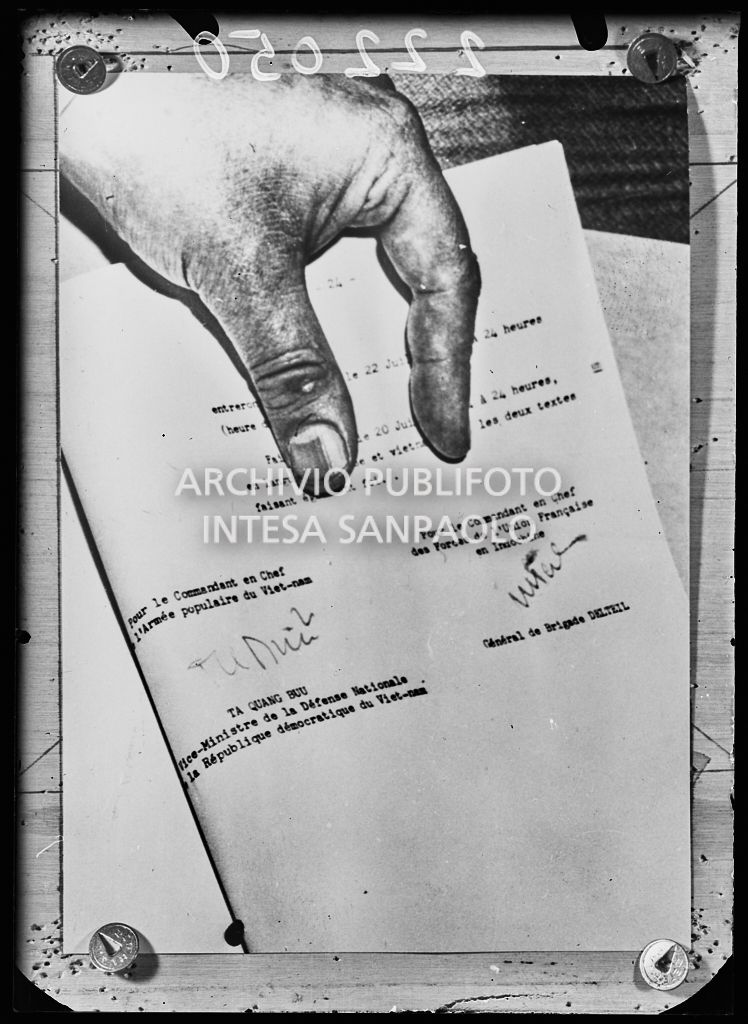 222050
24 -
le 22 Jui à 24 heures
entreron
(heure d à 24 heures,
le 20 Jui les deux textes
Fai e et vietn
en
faisant
ARCHIVIO PUBLIFOTO
INTESA SANPAOLO
Pour le Commandant en Chef
des Forces de l'Union Française
en Indochine
Pour le Commandant en Chef
l'Armée populaire du Viet-nam
Général de Brigade DELTEIL
TA QUANG BUU
Vice-Ministre de la Défense Nationale
la République démocratique du Viet-nam